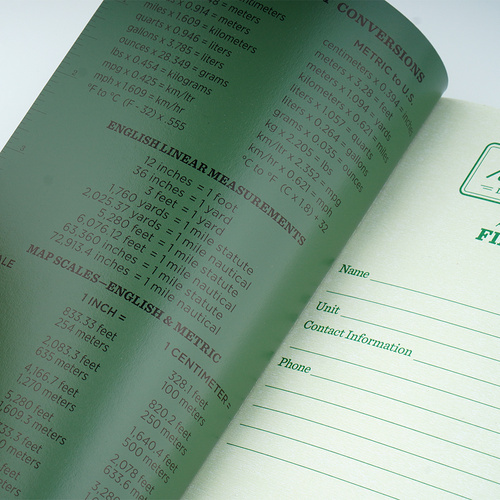 CONVERSIONS
meters
x 0.914 = meters
miles x 1.609 = kilometers
quarts x 0.946 = liters
gallons x 3.785 = liters
ounces x 28.349 = grams
lbs x 0.454 = kilograms
mpg x 0.425 = km/ltr
mph x 1.609 = km/hr
°F to °C (F - 32) x .555
METRIC to U.S.
centimeters x 0.394 =
meters x 3.28 = feet
meters x 1.094 = yards
kilometers x 0.621 = miles
liters x 1.057 = quarts
liters x 0.264 = gallons
grams x 0.035 = ounces
kg x 2.205 = lbs
km/ltr x 2.352 = mpg
km/hr x 0.621 = mph
°C to °F (C x 1.8) + 32
ENGLISH LINEAR MEASUREMENTS
12 inches = 1 foot
36 inches = 1 yard
3 feet = 1 yard
1,760 yards = 1 mile statute
2,025.37 yards = 1 mile nautical
5,280 feet = 1 mile statute
6,076.12 feet = 1 mile nautical
63,360 inches = 1 mile statute
72,913.4 inches = 1 mile nautical
MAP SCALES—ENGLISH & METRIC
1 INCH =
833.33 feet
254 meters
2,083.3 feet
635 meters
4,166.7 feet
1,270 meters
5,280 feet
1,609.3 meters
feet
meters
1 CENTIMETER =
328.1 feet
100 meters
820.2 feet
250 meters
1,640.4 feet
500 meters
2,078 feet
633.6 meters
Name
Unit
Contact Information
Phone